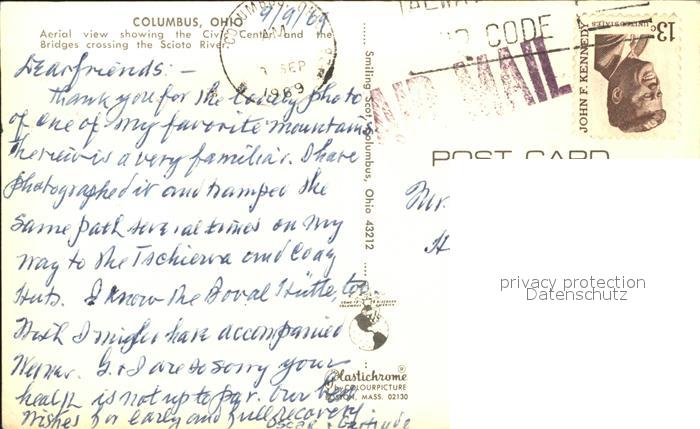 COLUMBUS, OHIO
Aerial view showing the Civic Center and the
Bridges crossing the Scioto River.
9/9/69
COLUMBUS
SEP
1969
ZIP CODE
AIR MAIL
13c
UNITED STATES
JOHN F. KENNEDY
POST CARD
Dear friends: —
Thank you for the lovely photo
of one of my favorite mountains
The view is a very familiar. I have
photographed it and tramped the
same path several times on my
way to the Tschierva and Coaz
Huts. I know the Boval Hütte, too
Wish I might have accompanied
Werner. G. & I are so sorry your
health is not up to par. Our best
wishes for early and full recovery!
Oscar & Gertrude
Smiling Scot, Columbus, Ohio 43212
Plastichrome ®
by COLOURPICTURE
BOSTON, MASS. 02130
Mr.
H
privacy protection
Datenschutz